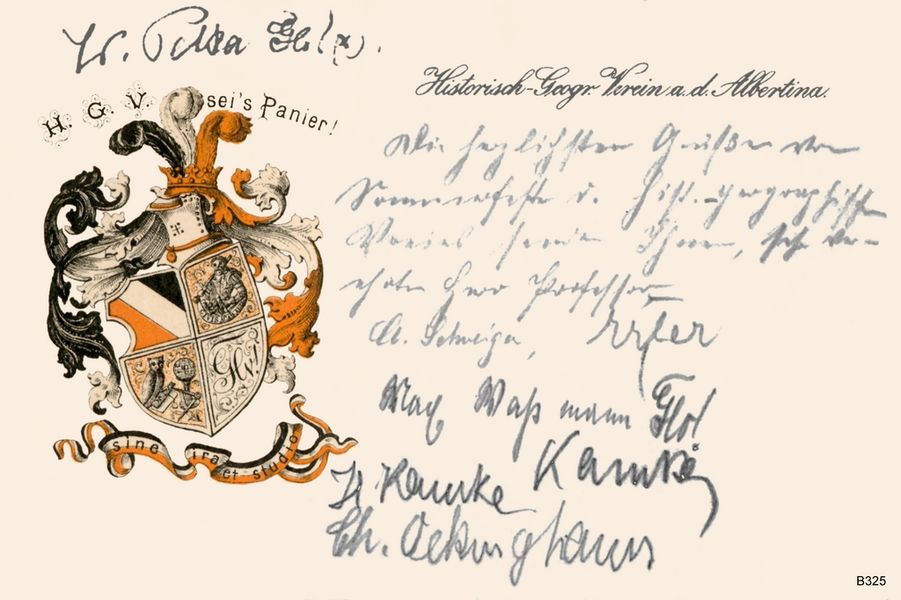 H. G. V. sei's Panier!
Historisch-Geogr. Verein a. d. Albertina.
Die herzlichsten Grüße vom
Sommerfeste d. hist.-geographischen
Vereins senden Ihnen, sehr ver-
ehrter Herr Professor,
Max Waßmann
Kamke
Kamke
Ch. Oekinghaus
sine ira et studio
B325